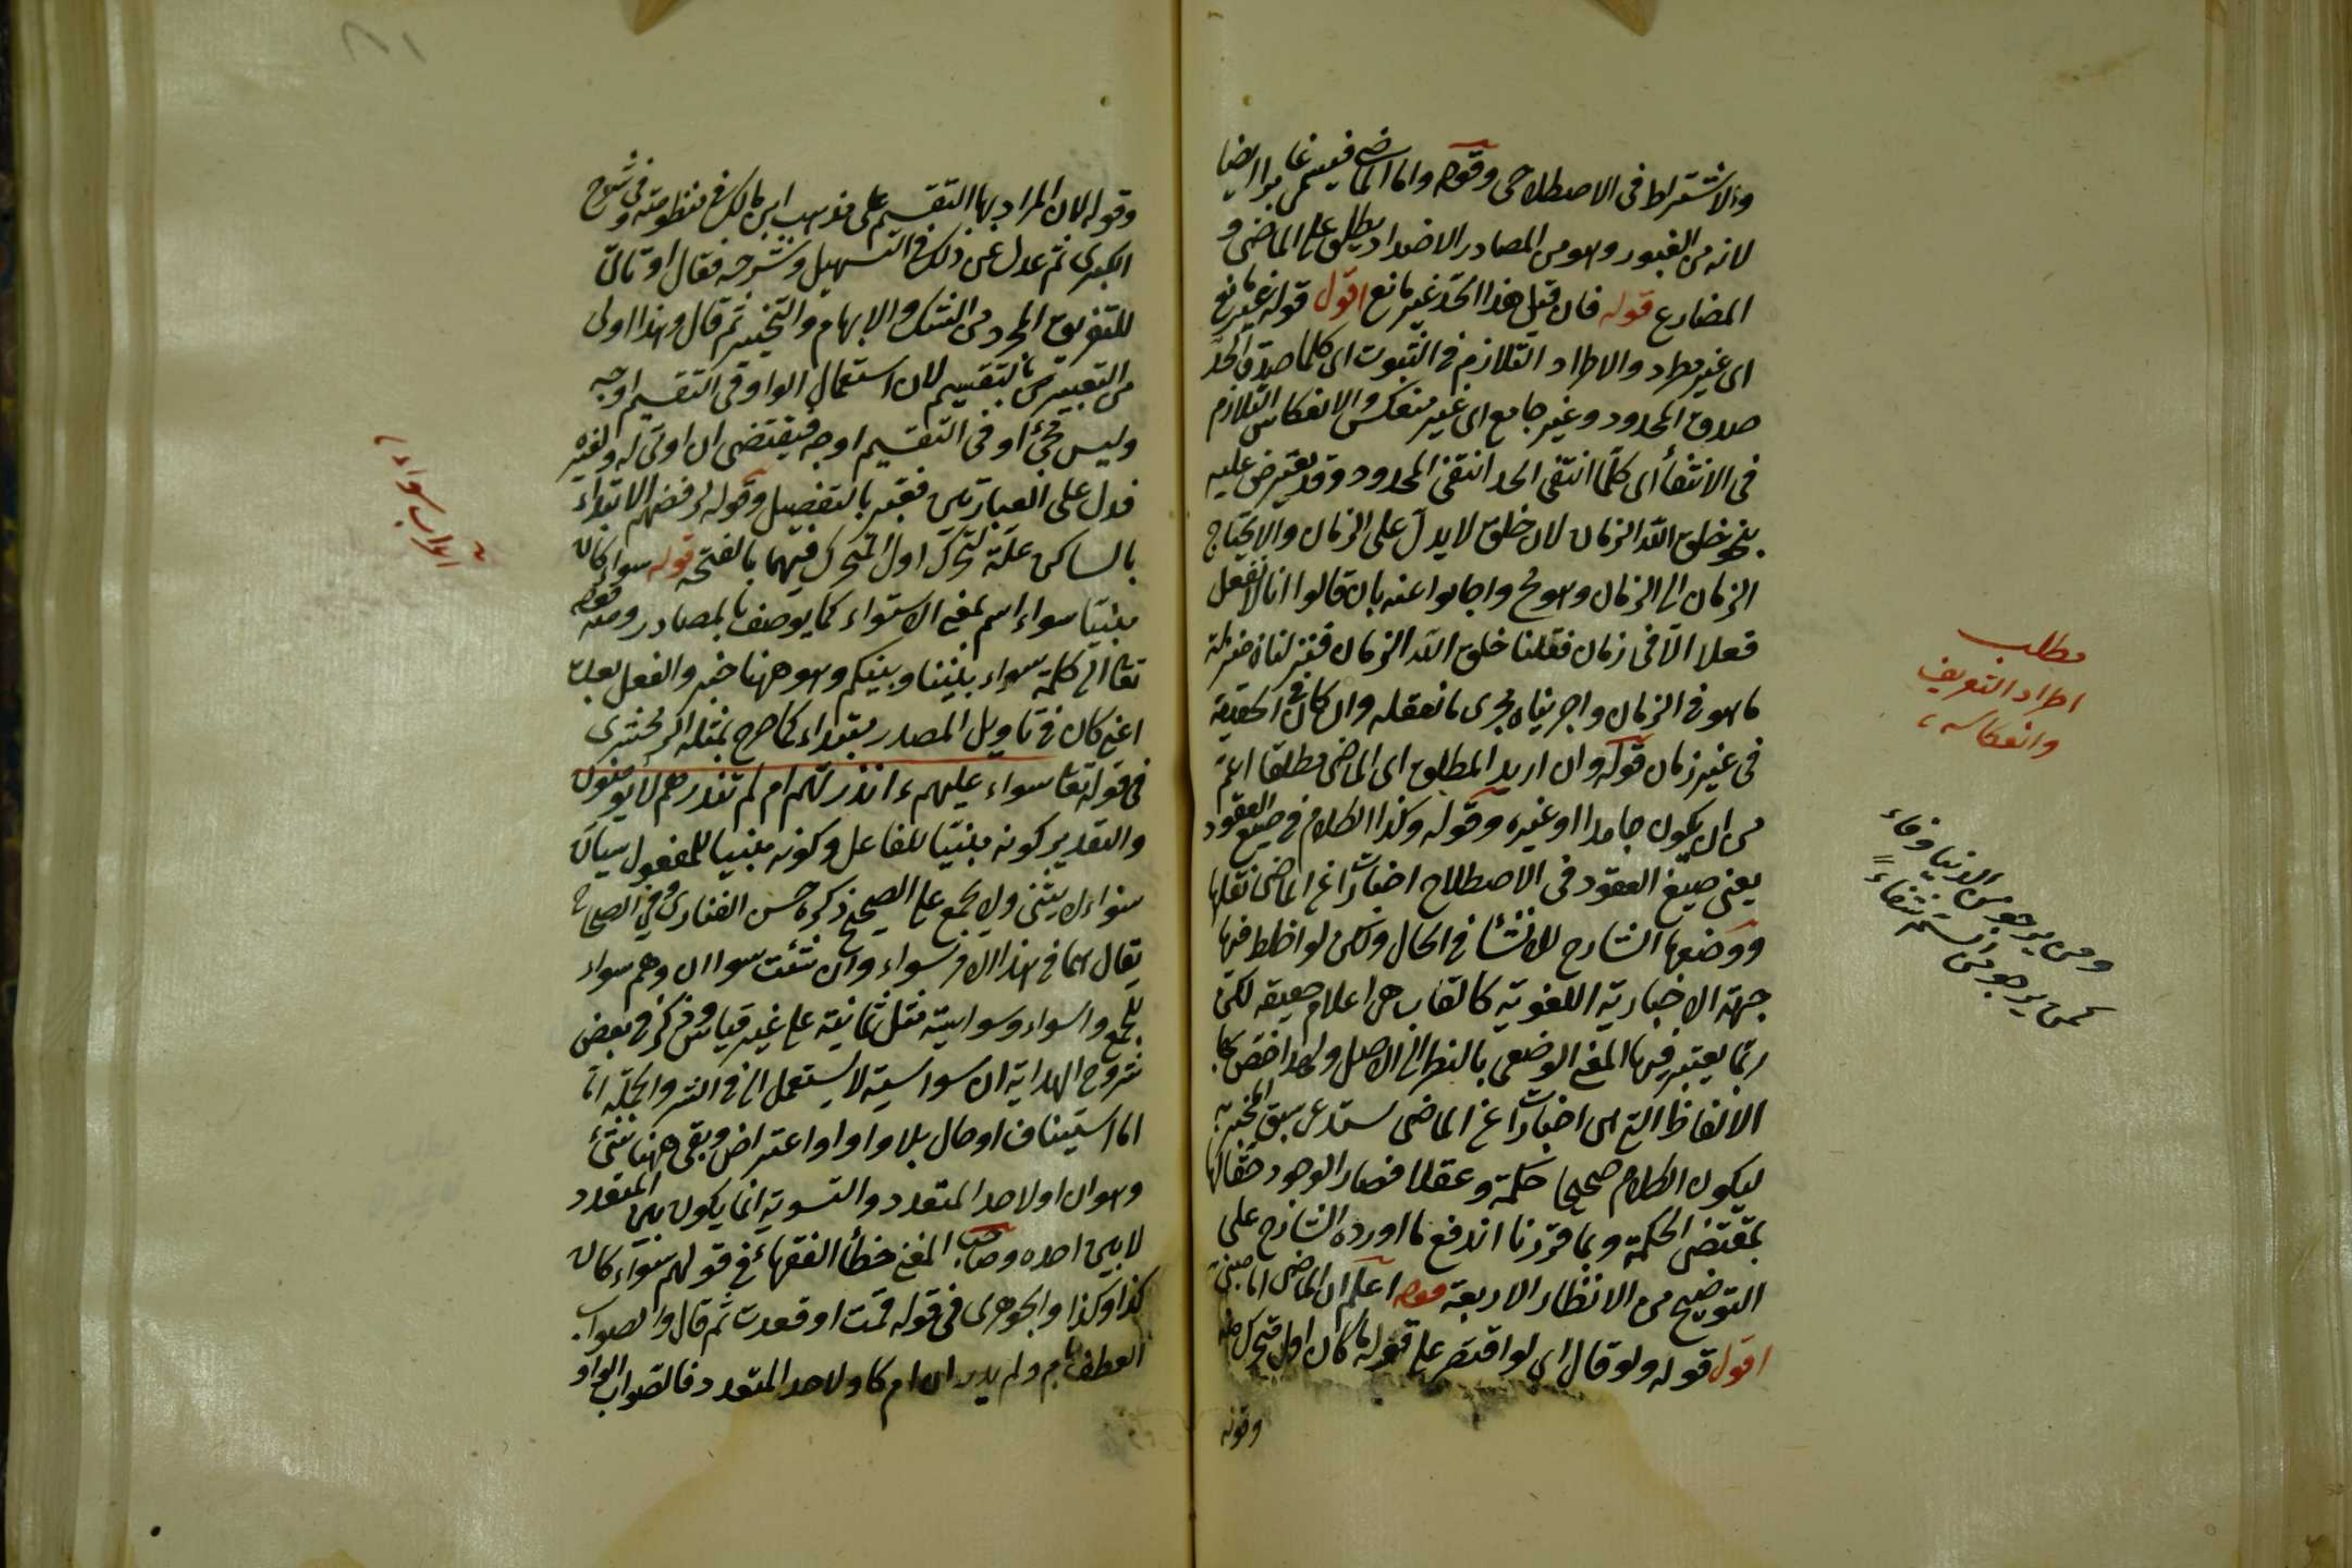 والاشتراط فى الاصطلاحى وقوله واما الماضى فيسمى غابرا ايضا
لانه من الغبور وهو من المصادر الاضداد يطلق على الماضى و
المضارع قوله فان قيل هذا الحد غير مانع اقول قوله غير مانع
اى غير مطرد والاطراد التلازم فى الثبوت اى كلما صدق الحد
صدق المحدود وغير جامع اى غير منعكس والانعكاس التلازم
فى الانتفأ اى كلما انتفى الحد انتفى المحدود وقد يعترض عليه
بنحو خلق الله الزمان لان خلق لا يدل على الزمان والا يحتاج
الزمان الى الزمان وهو مح واجابوا عنه بان قالوا انا لا نعقل
فعلا الا فى زمان فقلنا خلق الله الزمان فنزلناه منزلة
ما هو فى الزمان واجريناه مجرى ما نعقله وان كان فى الحقيقة
فى غير زمان قوله وان اريد المطلق اى الماضى مطلقا اعم
من ان يكون جامدا او غيره وقوله وكذا الكلام فى صيغ العقود
يعنى صيغ العقود فى الاصطلاح اخبارات عن الماضى نقلها
ووضعها الشارح للانشأ فى الحال ولكن لواحظ فيها
جهة الاخبارية اللغوية كالقاب هى اعلام حقيقة لكن
ربما يعتبر فيها المعنى الوضعى بالنظر الى الاصل ولهذا اختص بها
الالفاظ التى هى اخبارات عن الماضى يستدعى سبق المخبر به
ليكون الكلام صحيحا حكمة وعقلا فصار الوجود حقا لها
بمقتضى الحكمة وبما قررنا اندفع ما اورده الشارح على
التوضيح من الانظار الاربعة قوله اعلم ان الماضى اما مبنى
اقول قوله ولو قال اى لو اقتصر على قوله ما كان اول متحرك منه
وقوله
مطلب
اطراد التعريف
وانعكاسه
ومن يرجو من الدنيا وفاء
كمن يرجو من السم شفاء
وقوله لان المراد بها التقسيم على مذهب ابن مالك فى منظومته وفى شرح
الكبرى ثم عدل عن ذلك فى التسهيل وشرحه فقال او تأتى
للتفريق المجرد من الشك والابهام والتخيير ثم قال وهذا اولى
من التعبير بالتقسيم لان استعمال الواو فى التقسيم اوجه
وليس مجئ او فى التقسيم اوجه فيقتضى ان او تى له ولغيره
فدل على العبارتين فعبر بالتفصيل وقوله لرفضهم الابتداء
بالساكن علة لتحرك اول المتحرك فيهما بالفتحة قوله سواء كان
مبنيا سواء اسم بمعنى الاستواء كما يوصف بالمصادر ومنه قوله
تعالى الى كلمة سواء بيننا وبينكم وهو ههنا خبر والفعل بعده
اعنى كان فى تأويل المصدر مبتداء كما صرح بمثله الزمخشرى
فى قوله تعا سواء عليهم ءانذرتهم ام لم تنذرهم لا يؤمنون
والتقدير كونه مبنيا للفاعل وكونه مبنيا للمفعول سيان
سواء لا يثنى ولا يجمع على الصحيح ذكره حسن الفنارى وفى الصحاح
يقال هما فى هذا الامر سواء وان شئت سواان وهم سواء
للجمع واسواء وسواسية مثل ثمانية على غير قياس وذكر فى بعض
شروح الهداية ان سواسية لا يستعمل الا فى الشر والجملة اما
اما استيناف او حال بلا واو او اعتراض وبقى ههنا شئ
وهو ان او لاحد المتعدد والتسوية انما يكون بين المتعدد
لا بين احده وصاحب المغنى خطأ الفقهاء فى قولهم سواء كان
كذا وكذا والجوهرى فى قوله قمت او قعدت ثم قال والصواب
العطف بام ولم يدر ان ام كاو لاحد المتعدد فالصواب الواو
اعراب سواء